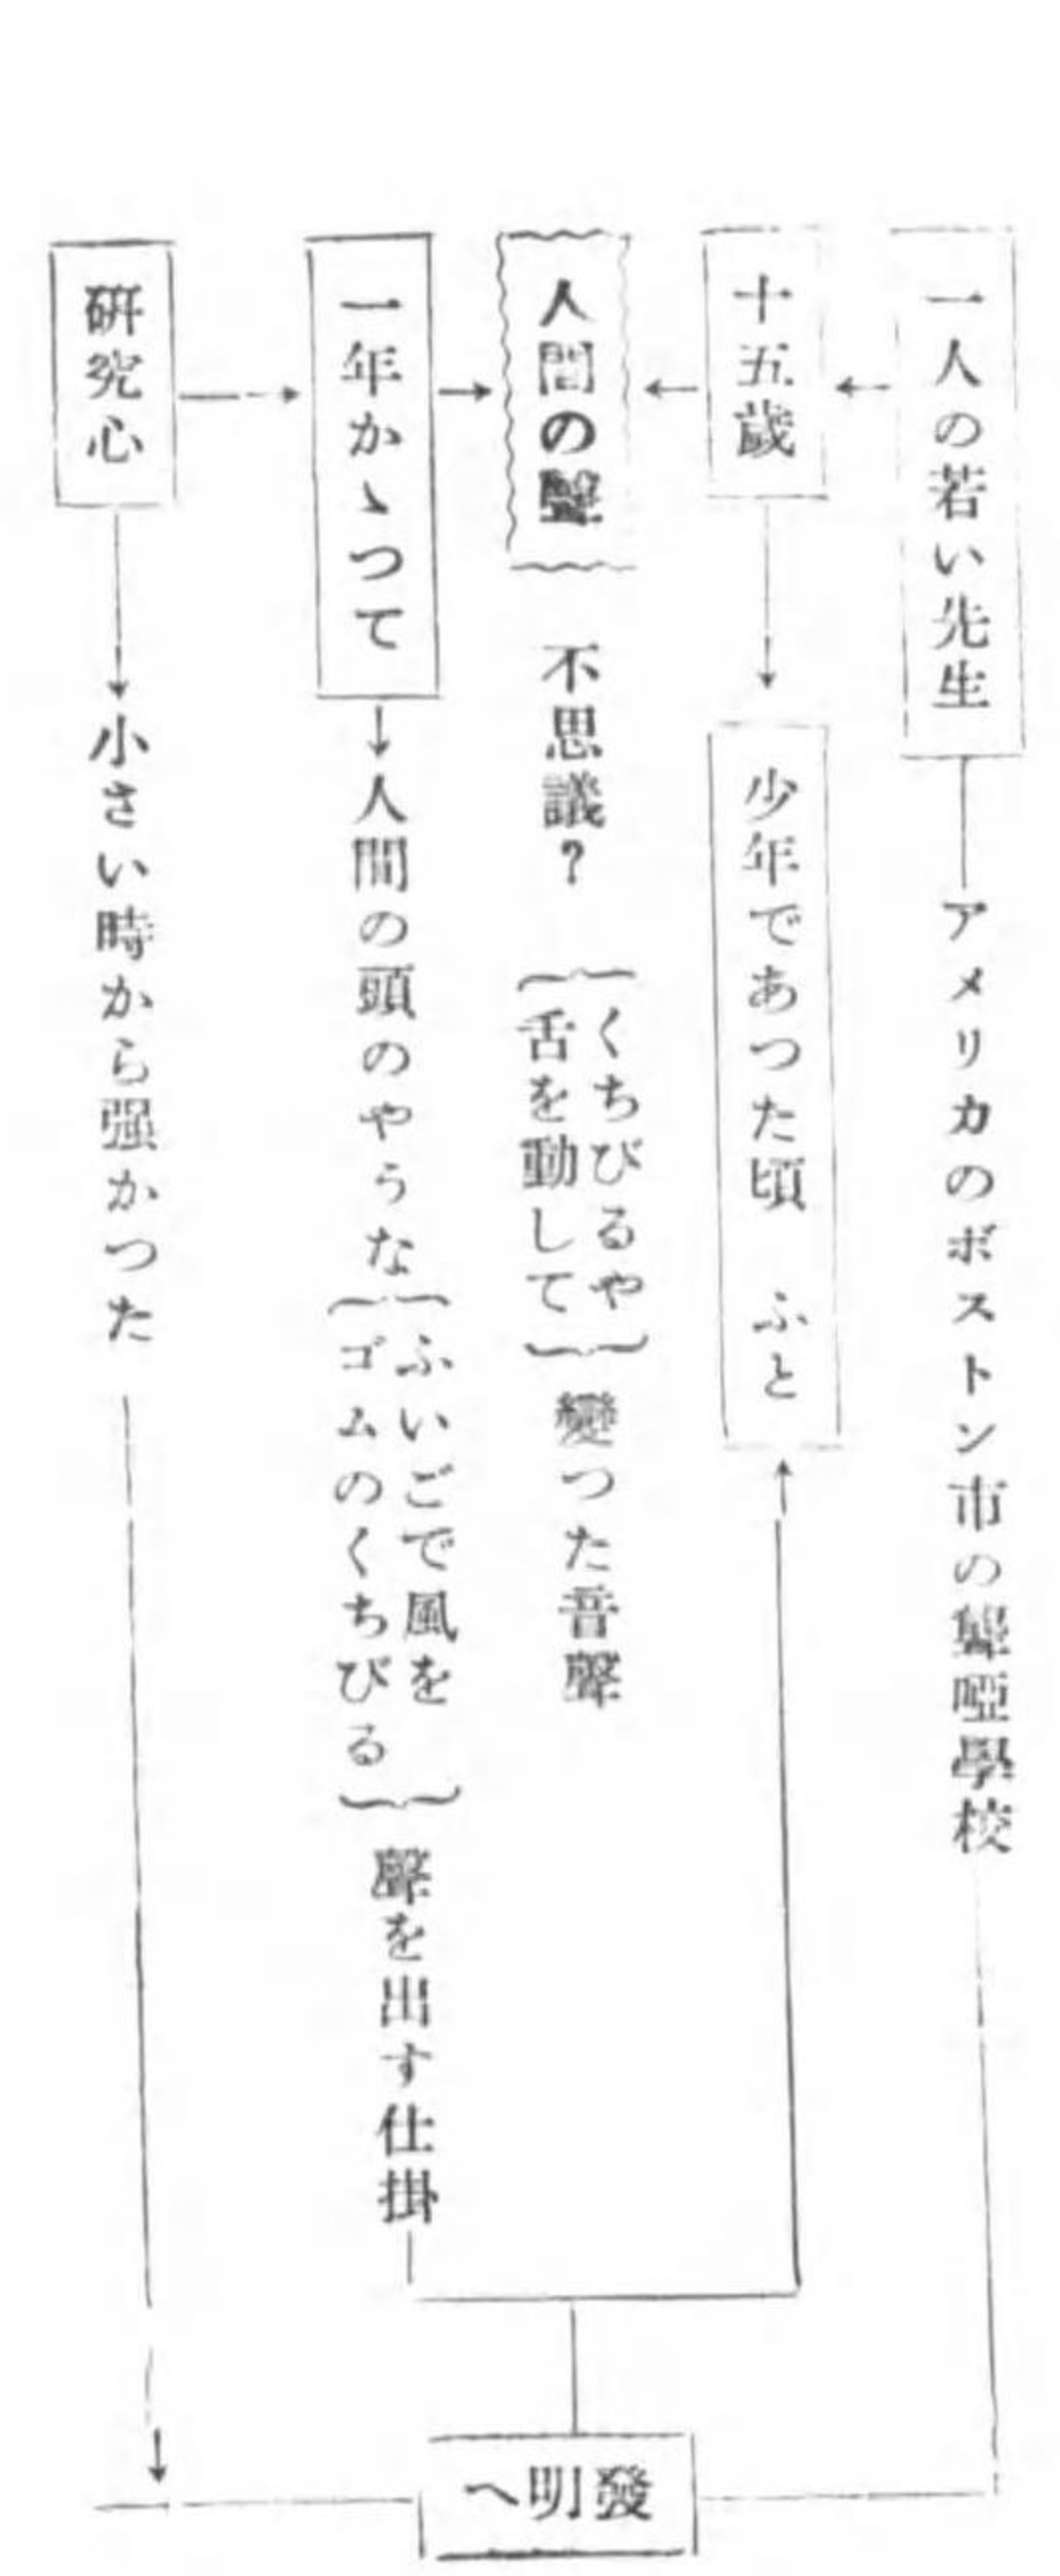 一人の若い先生
アメリカのボストン市の聾啞學校
十五歲
少年であつた頃　ふと
人間の聲
不思議?
くちびるや
舌を動して
變つた音聲
一年かゝつて
人間の頭のやうな
ふいごで風を
ゴムのくちびる
聲を出す仕掛
硏究心
小さい時から强かつた
發明へ